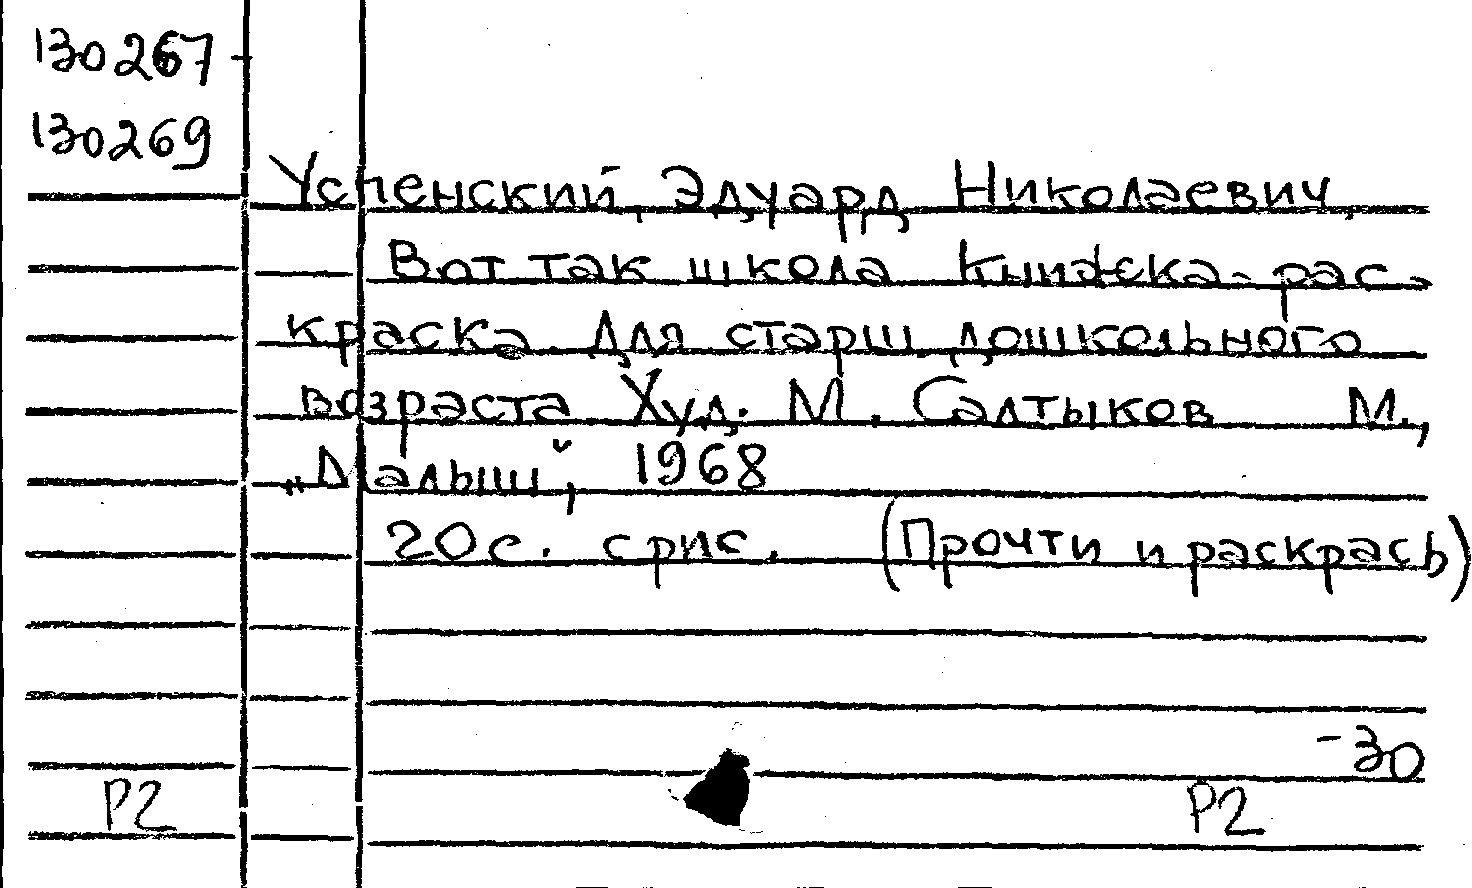 130267 -
130269
Успенский, Эдуард Николаевич.
Вот так школа Книжка-рас-
краска. Для старш. дошкольного
возраста Худ. М. Салтыков М.,
„Малыш", 1968
20с. с рис. (Прочти и раскрась)
-30
Р2 Р2